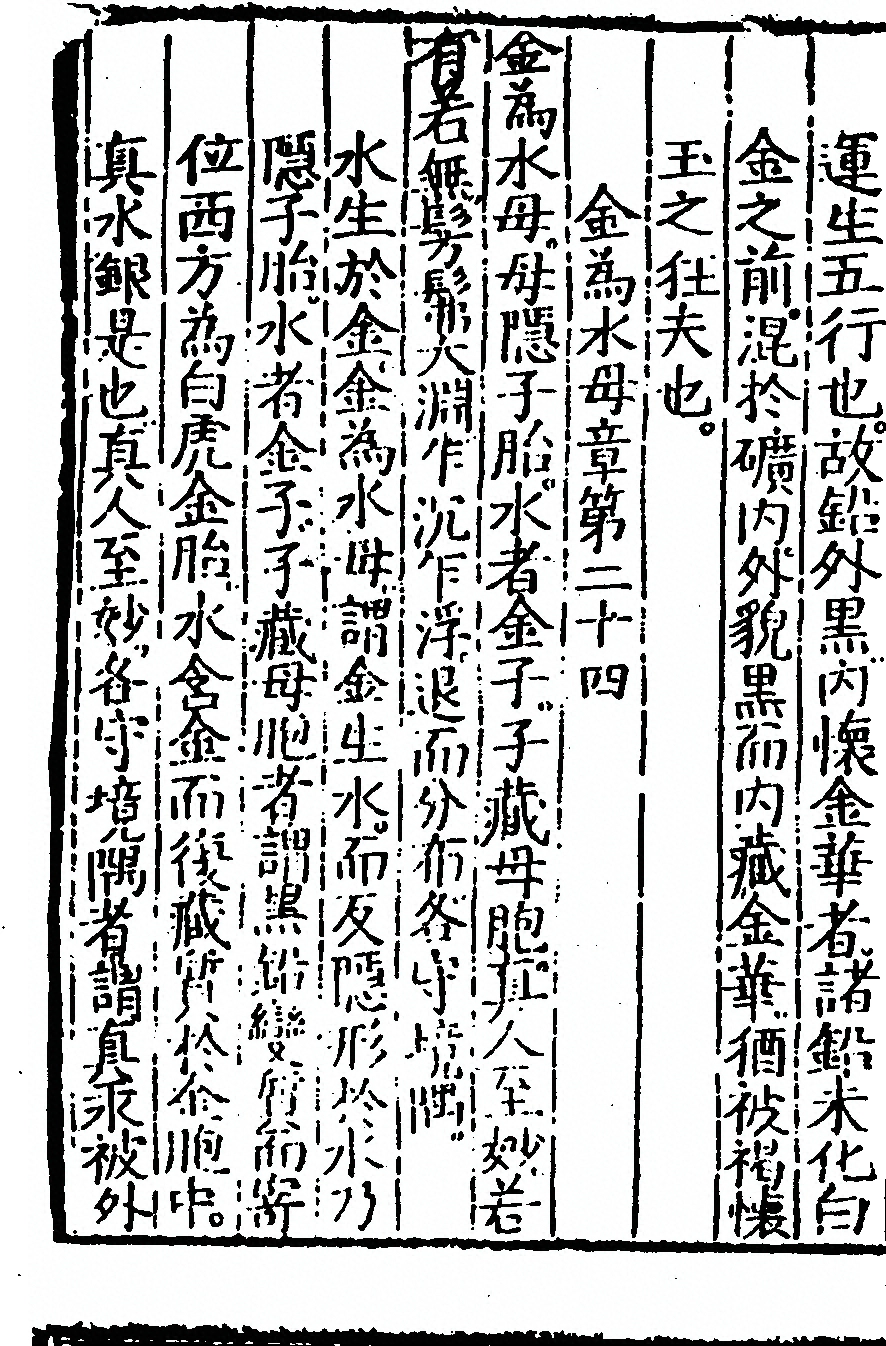 運生五行也。故鉛外黒内懷金華者、諸鉛未化白
金之前、混於礦内、外貌黒而内藏金華、猶被褐懷
玉之狂夫也。
金為水母章第二十四
金為水母、母隱子胎、水者金子、子藏母胞、真人至妙、若
有若無、髣髴大淵、乍沉乍浮、退而分布、各守境隅。
水生於金、金為水母、謂金生水、而反隱形於水、乃
隱子胎。水者金子、子藏母胞者、謂黒鉛變質而寄
位西方為白虎金胎、水含金而復藏質於金胞中。
真水銀是也、真人至妙、各守境隅者、謂真汞被外